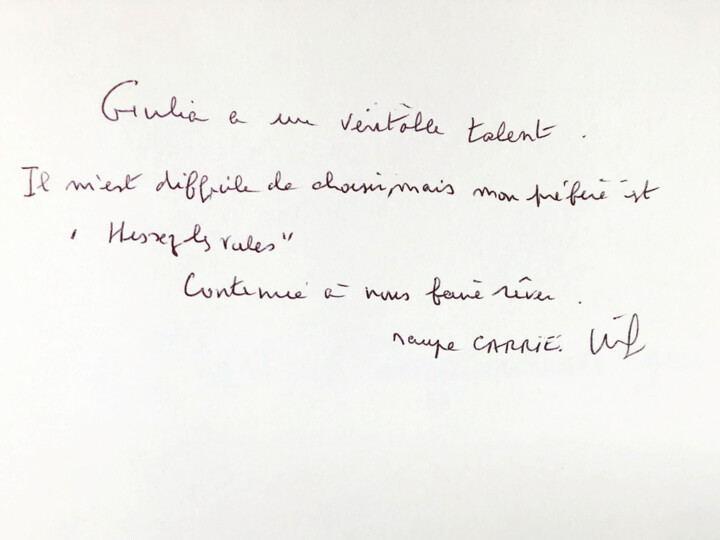 Giulia a un véritable talent.
Il m'est difficile de choisir, mais mon préféré est
"Hissez les voiles"
Continue à nous faire rêver.
CARRIE.